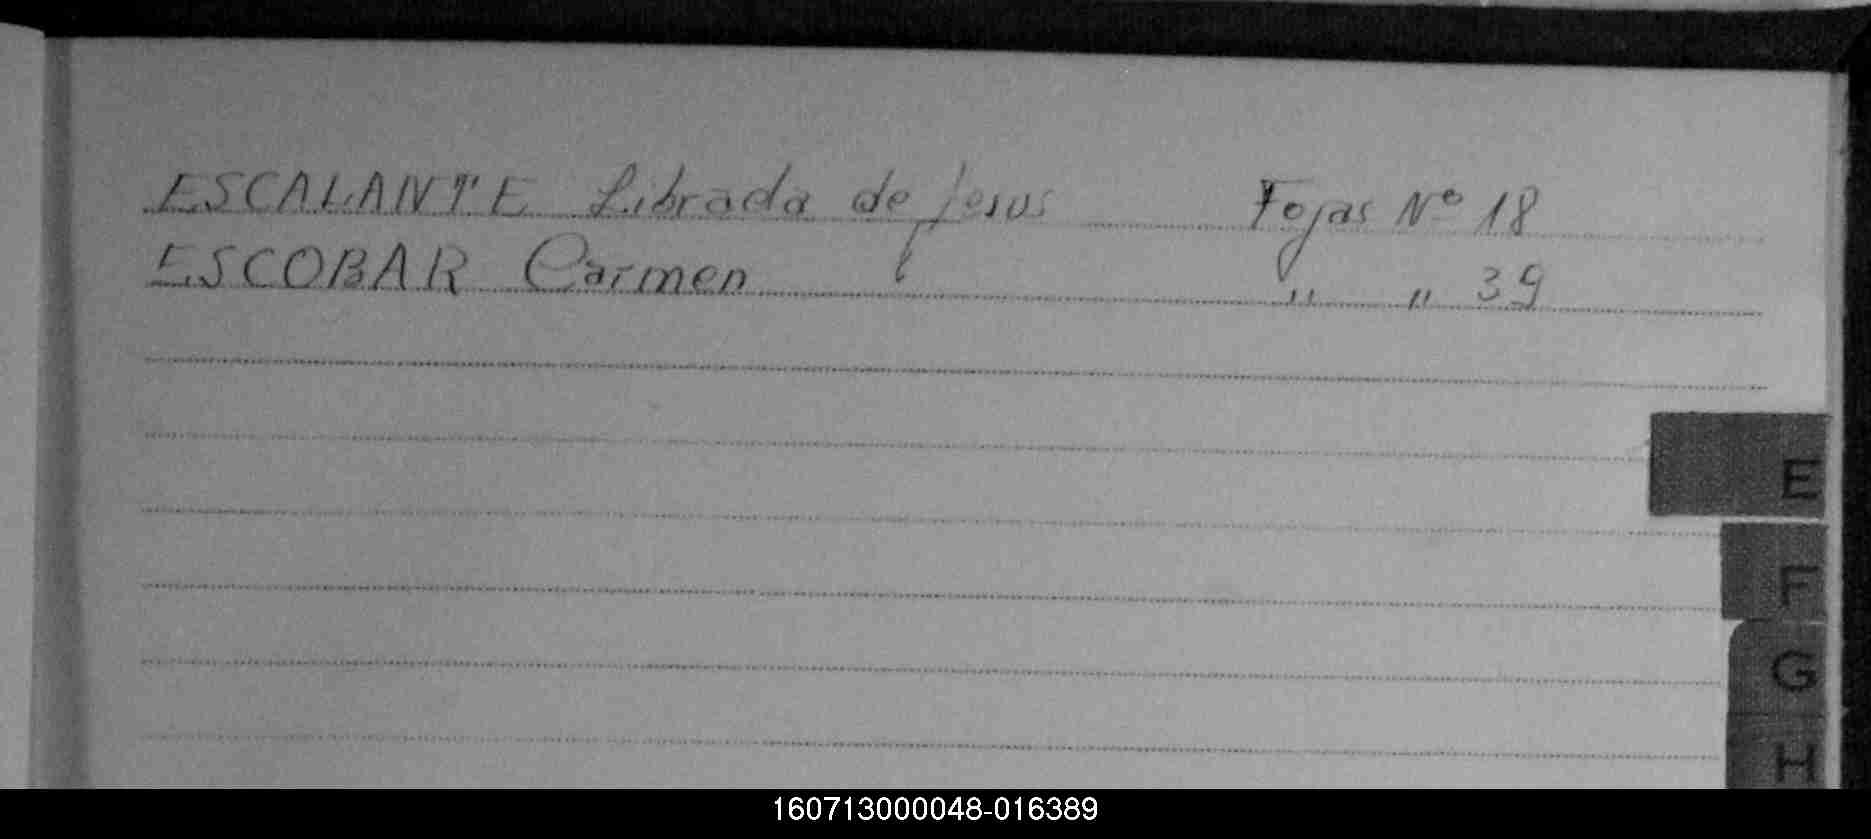 ESCALANTE Librada de Jesus Fojas Nº 18
ESCOBAR Carmen " " 39
E
F
G
H
160713000048-016389